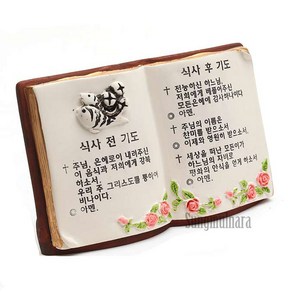 식사 전 기도
주님, 은혜로이 내려주신
이 음식과 저희에게 강복
하소서.
우리 주 그리스도를 통하여
비나이다.
아멘.
식사 후 기도
전능하신 하느님,
저희에게 베풀어주신
모든은혜에 감사하나이다
아멘.
주님의 이름은
찬미를 받으소서
이제와 영원히 받으소서.
세상을 떠난 모든이가
하느님의 자비로
평화의 안식을 얻게 하소서
아멘.
Sungmulnara